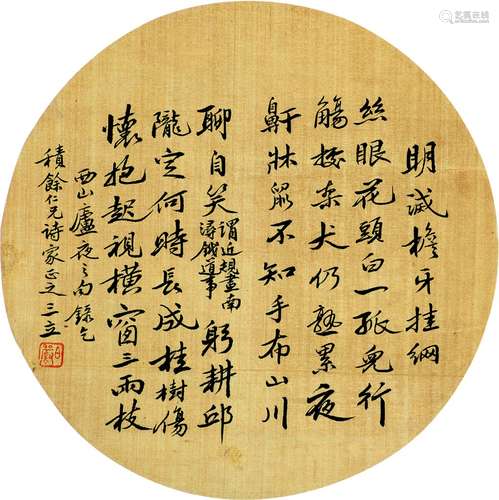 明滅檐牙挂網
絲眼花頭白一孤兒行
觴授粲犬仍熟累夜
鼾牀鼠不知手布山川
聊自笑謂近規畫南潯鐵道事躬耕邱
隴定何時長成桂樹傷
懷抱起視橫窗三兩枝
西山廬夜之句錄乞
積餘仁兄詩家正之三立
伯嚴